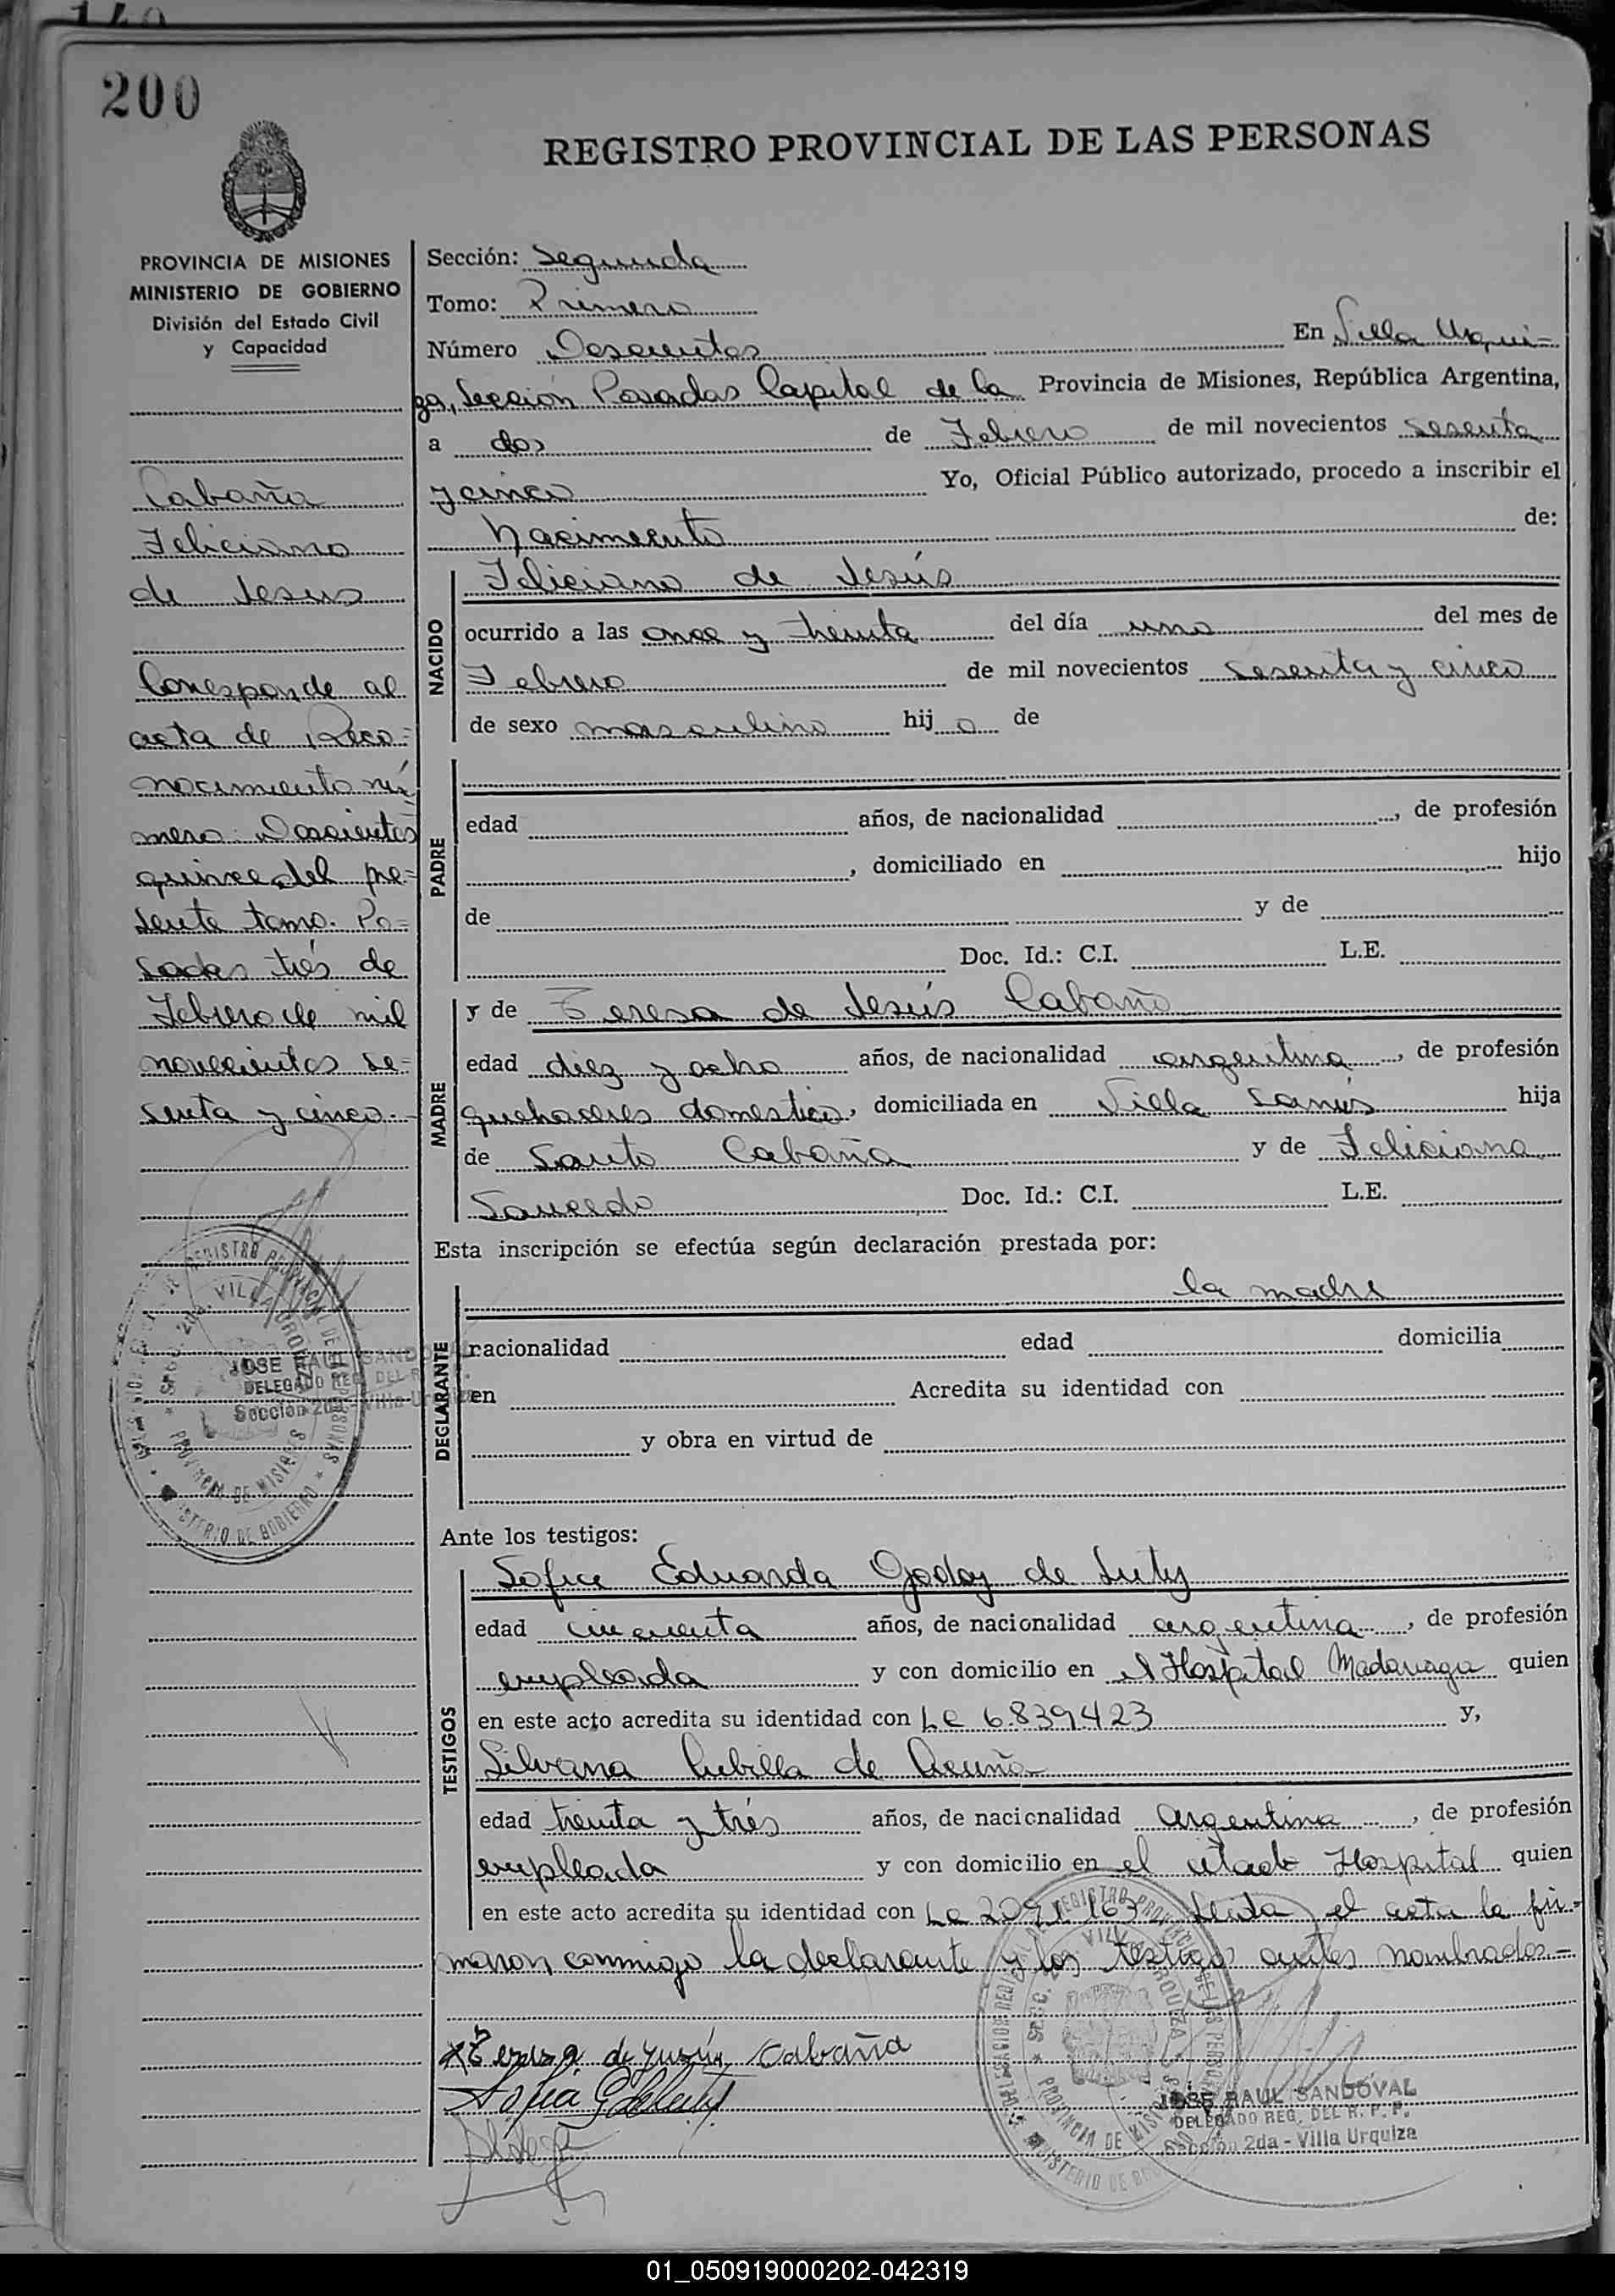 200
REGISTRO PROVINCIAL DE LAS PERSONAS
PROVINCIA DE MISIONES
MINISTERIO DE GOBIERNO
División del Estado Civil
y Capacidad
Cabaña
Feliciano
de Jesus
Corresponde al
acta de Reco=
nocimiento nú
mero Doscientos
quince del pre=
sente tomo. Po=
sadas trés de
Febrero de mil
novecientos se=
senta y cinco.-
Sección: Segunda
Tomo: Primero
Número Doscientos En Villa Urqui=
za, Sección Posadas Capital de la Provincia de Misiones, República Argentina,
a dos de Febrero de mil novecientos sesenta
y cinco Yo, Oficial Público autorizado, procedo a inscribir el
Nacimiento de:
NACIDO
Feliciano de Jesús
ocurrido a las once y treinta del día uno del mes de
Febrero de mil novecientos sesenta y cinco
de sexo masculino hij o de
PADRE
edad años, de nacionalidad , de profesión
, domiciliado en hijo
de y de
Doc. Id.: C.I. L.E.
MADRE
y de Teresa de Jesús Cabaña
edad diez y ocho años, de nacionalidad argentina , de profesión
quehaceres domestico, domiciliada en Villa Sarmis hija
de Santo Cabaña y de Feliciana
Saucedo Doc. Id.: C.I. L.E.
Esta inscripción se efectúa según declaración prestada por:
DECLARANTE
la madre
nacionalidad edad domicilia
en Acredita su identidad con
y obra en virtud de
Ante los testigos:
TESTIGOS
Sofia Eduarda Godoy de
edad cincuenta años, de nacionalidad argentina , de profesión
empleada y con domicilio en el Hospital Madariaga quien
en este acto acredita su identidad con L C 6.839.423 y,
Silvana Cubilla de Acuña
edad treinta y trés años, de nacionalidad argentina , de profesión
empleada y con domicilio en el citado Hospital quien
en este acto acredita su identidad con L C 163 Leida el acta la fir=
maron conmigo la declarante y los testigos antes nombrados.-
Teresa de Cabaña
Sofia
REGISTRO PROVINCIAL DE LAS PERSONAS
SECC. 2da. VILLA URQUIZA
PROVINCIA DE MISIONES
MINISTERIO DE GOBIERNO
JOSE RAUL SANDOVAL
DELEGADO REG. DEL R.
Sección 2da - Villa Urquiza
DELEGACION REGISTRO PROVINCIAL DE LAS PERSONAS
SECC. 2da. VILLA URQUIZA
PROVINCIA DE MISIONES
MINISTERIO DE GOBIERNO
JOSE RAUL SANDOVAL
DELEGADO REG. DEL R. P. P.
Sección 2da - Villa Urquiza
01_050919000202-042319